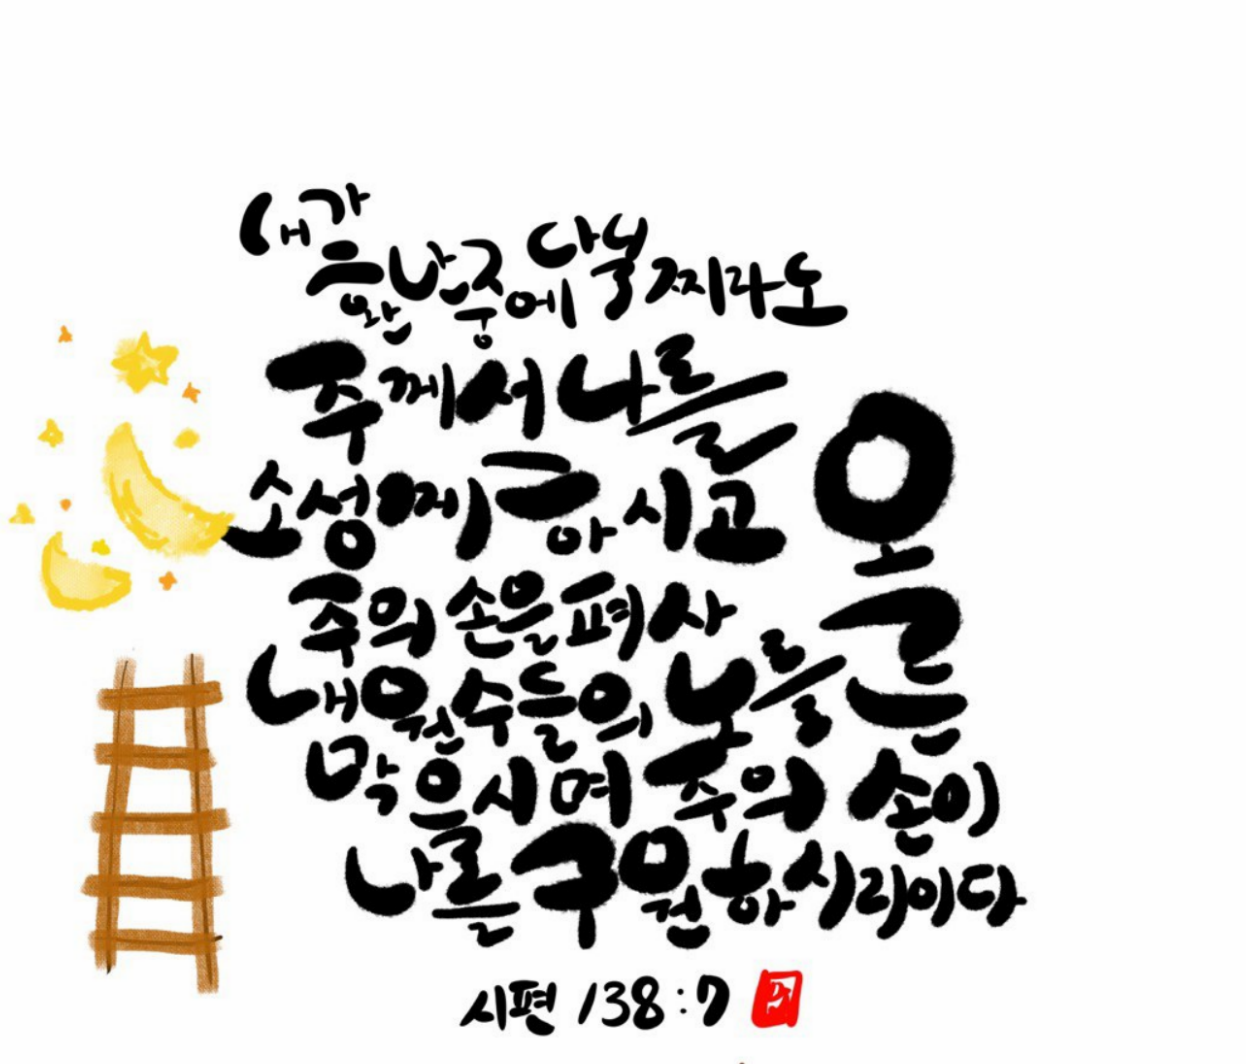 내가
환난중에 다닐찌라도
주께서 나를
소성께 하시고
주의 손을 펴사
내 원수들의 노를
막으시며 주의 오른손이
나를 구원하시리이다
시편 138:7